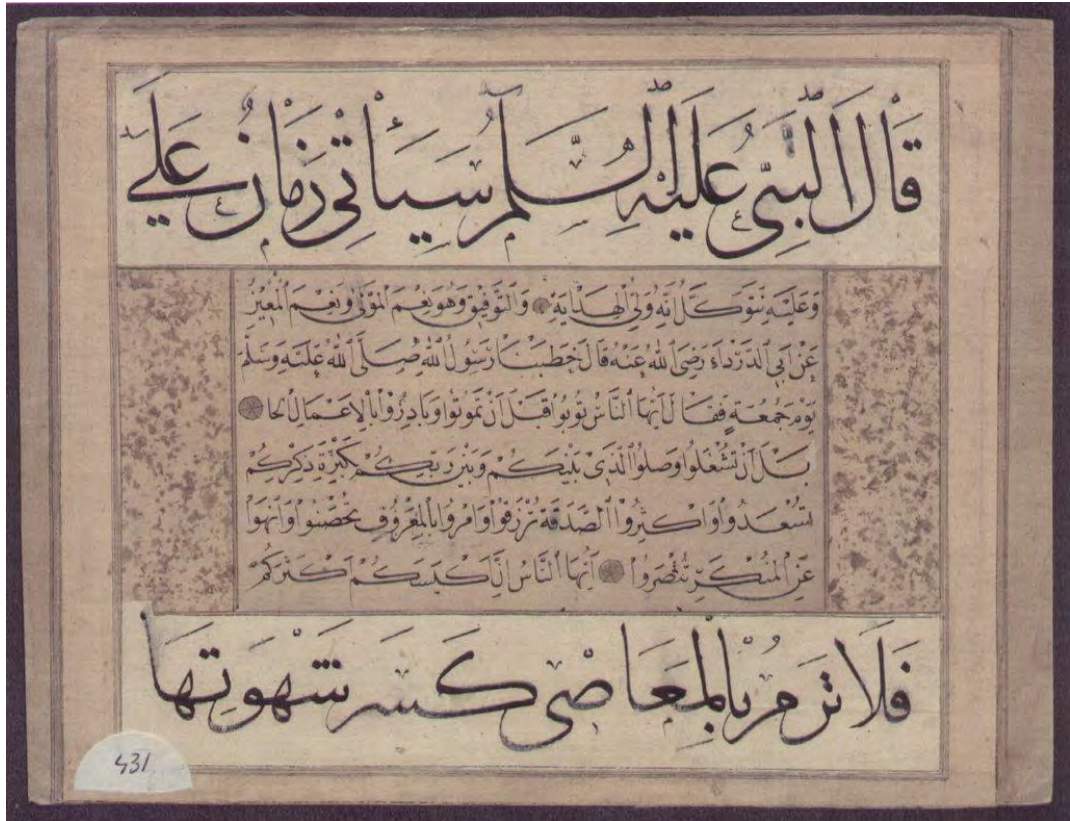 قَالَ ٱلنَّبِيُّ عَلَيْهِ ٱلسَّلَمُ سَيَأْتِي زَمَانٌ عَلَى
وَعَلَيْهِ نَتَوَكَّلُ إنَّهُ وَلِيُّ الْهِدَايَةِ وَالتَّوْفِيقِ وَهُوَ نِعْمَ الْمَوْلَى وَنِعْمَ الْمُعِينُ
عَنْ أَبِي الدَّرْدَاءِ رَضِيَ اللهُ عَنْهُ قَالَ خَطَبَنَا رَسُولُ اللهِ صَلَّى اللهُ عَلَيْهِ وَسَلَّمَ
يَوْمَ جُمُعَةٍ فَقَالَ أَيُّهَا النَّاسُ تُوبُوا قَبْلَ أَنْ تَمُوتُوا وَبَادِرُوا بِالْاَعْمَالِ الحا
بل أَنْ تُشْغَلُوا وَصِلُوا الَّذِي بَيْنَكُمْ وَبَيْنَ رَبِّكُمْ بِكَثْرَةِ ذِكْرِكُمْ
تَسْعَدُوا وَاَكْثِرُوا الصَّدَقَةَ تُرْزَقُوا وَامُرُوا بِالْمَعْرُوفِ تُحْصَنُوا وَانْهَوْا
عَنِ الْمُنْكَرِ تُنْصَرُوا أَيُّهَا النَّاسُ إِنَّ اَكْيَسَكُمْ اَكْثَرُكُمْ
فَلَا تَرُمْ بِالْمَعَاصِى كَسْرَ شَهْوَتِهَا
431